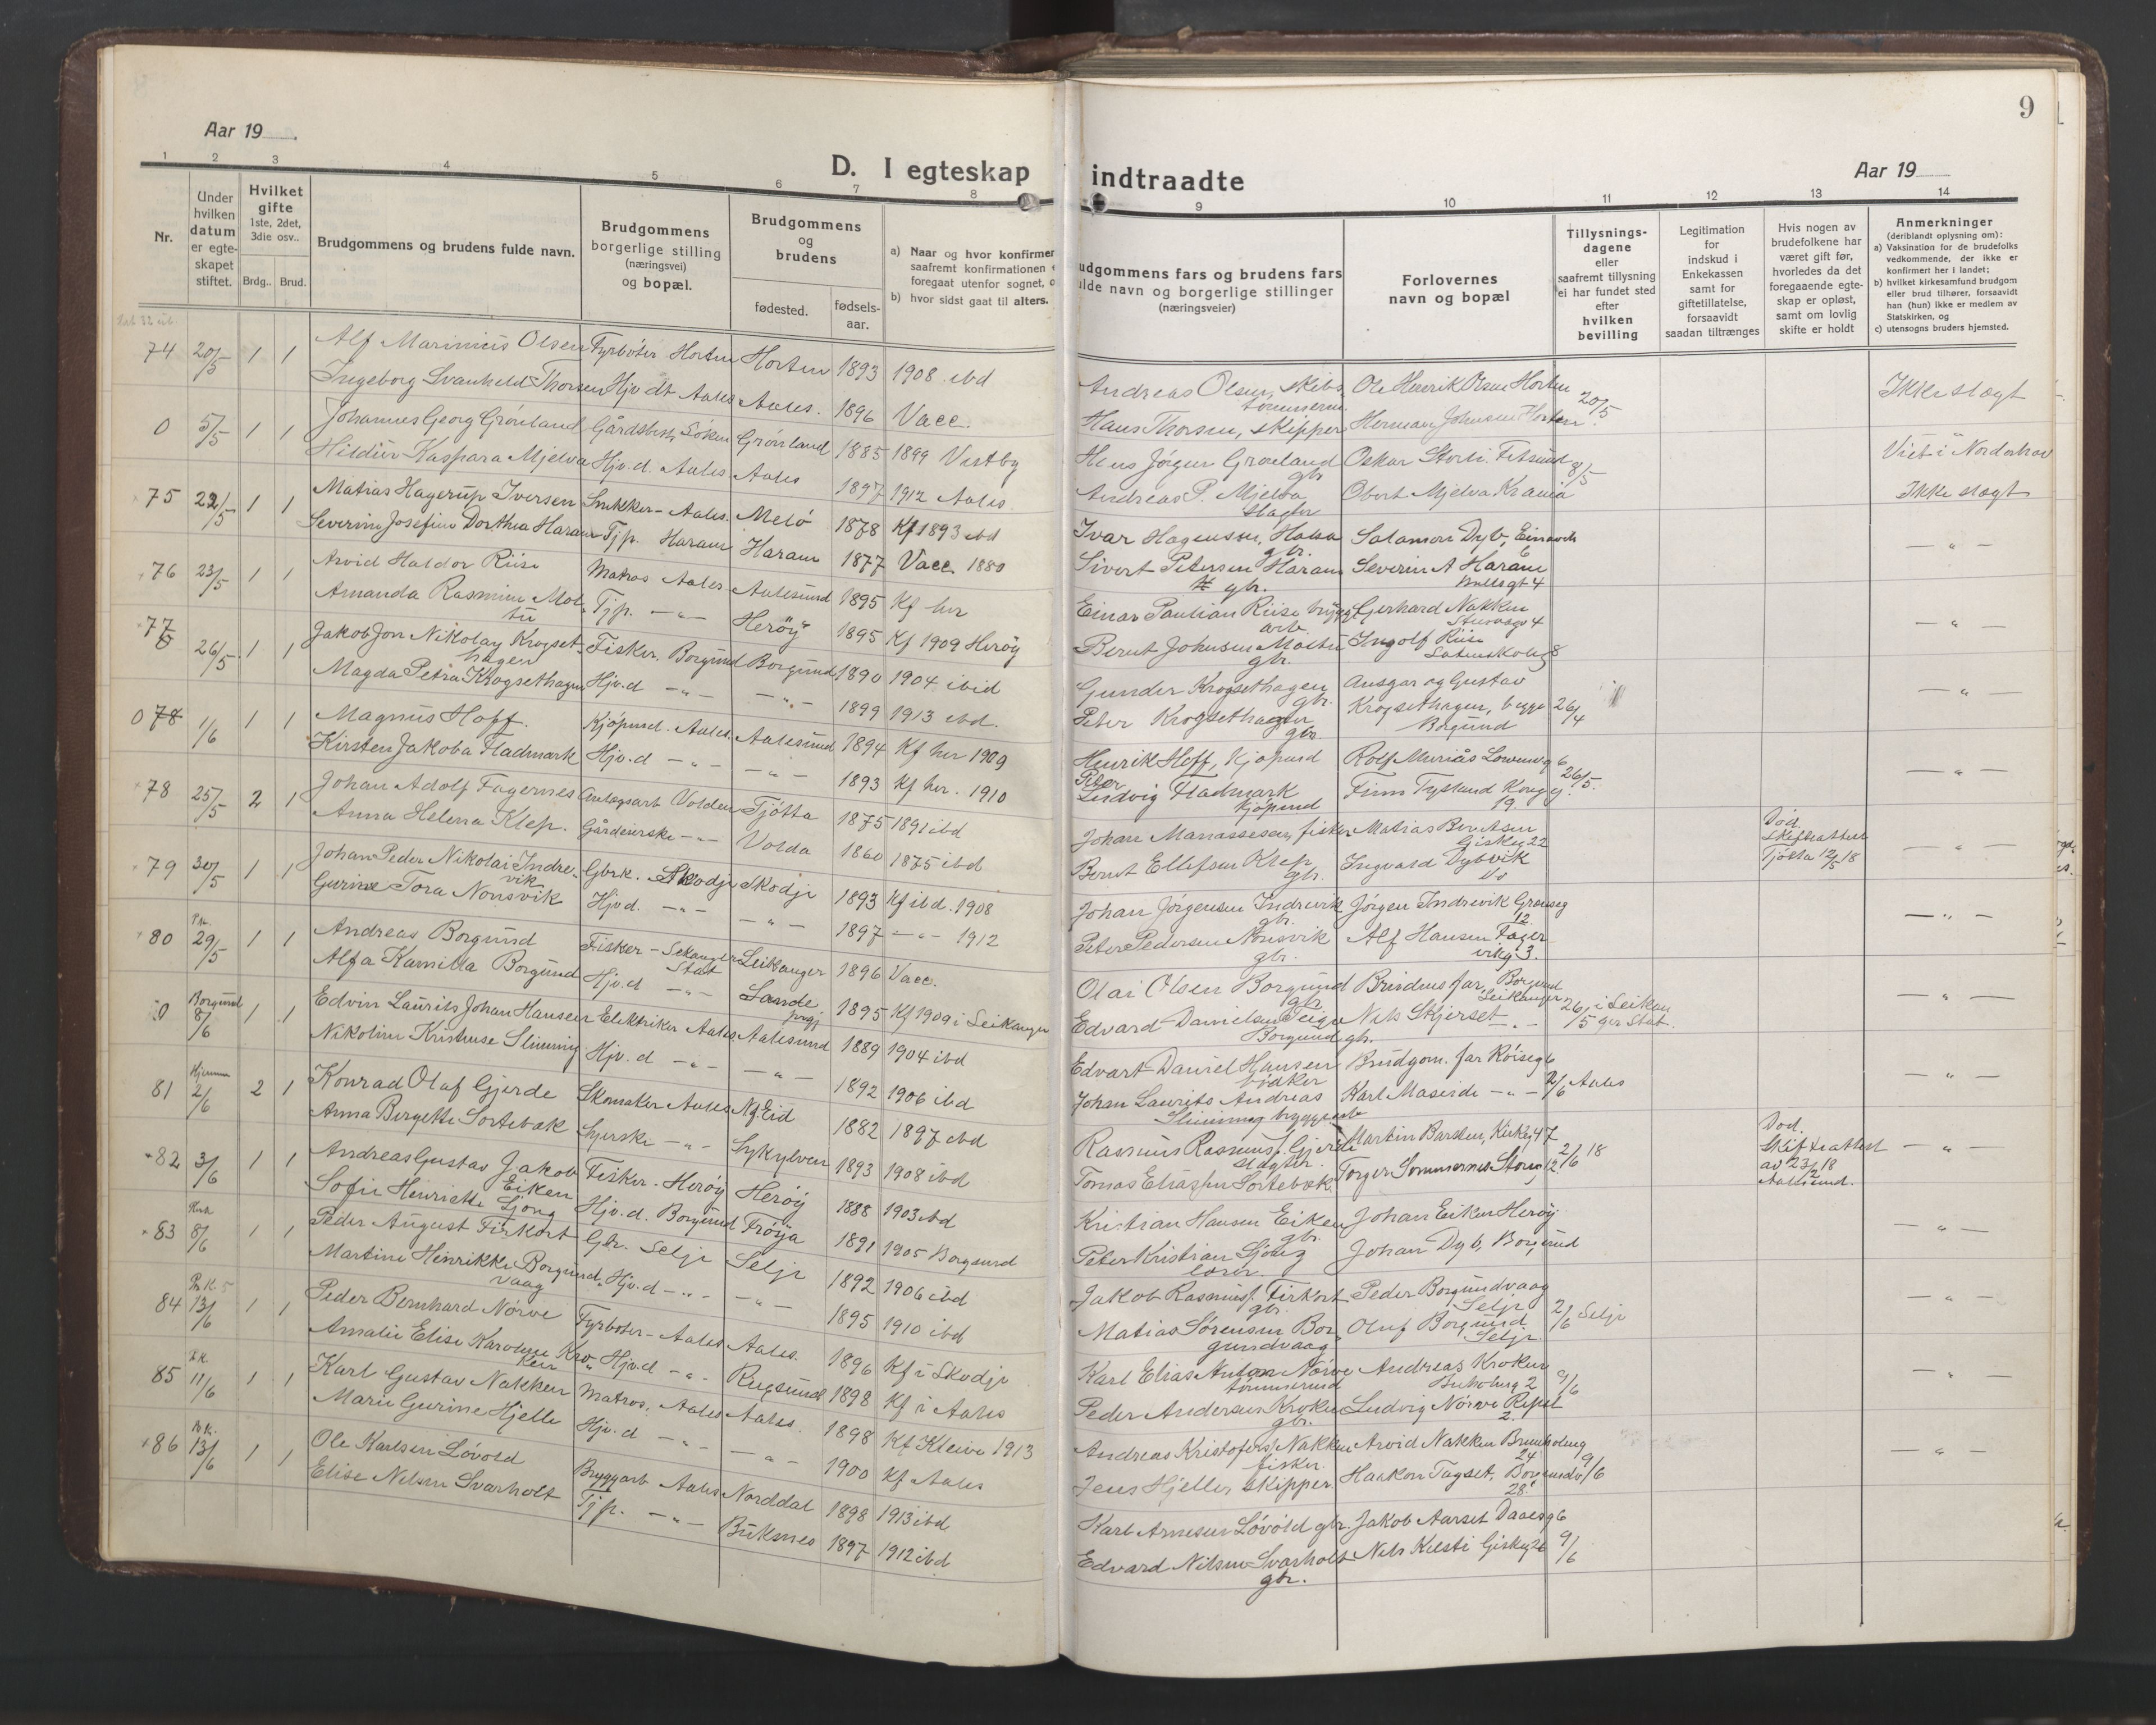 9
Aar 19
D. I egteskap indtraadte
Aar 19
1 2 3 4 5 6 7 8 9 10 11 12 13 14
Nr.
Under
hvilken
datum
er egte-
skapet
stiftet.
Hvilket
gifte
1ste, 2det,
3die osv..
Brdg.. Brud.
Brudgommens og brudens fulde navn.
Brudgommens
borgerlige stilling
(næringsvei)
og bopæl.
Brudgommens
og
brudens
fødested.
fødsels-
aar.
a) Naar og hvor konfirmer
saafremt konfirmationen
foregaat utenfor sognet,
b) hvor sidst gaat til alters.
udgommens fars og brudens fars
ulde navn og borgerlige stillinger
(næringsveier)
Forlovernes
navn og bopæl
Tillysnings-
dagene
eller
saafremt tillysning
ei har fundet sted
efter
hvilken
bevilling
Legitimation
for
indskud i
Enkekassen
samt for
giftetillatelse,
forsaavidt
saadan tiltrænges
Hvis nogen av
brudefolkene har
været gift før,
hvorledes da det
foregaaende egte-
skap er opløst,
samt om lovlig
skifte er holdt
Anmerkninger
(deriblandt oplysning om):
a) Vaksination for de brudefolks
vedkommende, der ikke er
konfirmert her i landet;
b) hvilket kirkesamfund brudgom
eller brud tilhører, forsaavidt
han (hun) ikke er medlem av
Statskirken, og
c) utensogns bruders hjemsted.
74 20/5 1 1 Alf Marinius Olsen Fyrbøter Horten Horten 1893 1908 ibd
Ingeborg Svanhild Thorsen Hjv. dt Aales Aales. 1896 Vacc.
Andreas Olsen, skibs Ole Henrik Olsen Horten 20/5 Ikke slægt
tømmerm.
Hans Thorsen, skipper Herman Johnsen Horten
0 5/5 1 1 Johannes Georg Grønland Gårdsbest. Søken Grønland 1885 1899 Vestby
Hildur Kaspara Mjelva Hjv. d. Aales. Aales 1897 1912 Aales
Hans Jørgen Grønland Oskar Storli. Fetsund 8/5 Viet i Norderhov
gbr
Andreas P. Mjelva Obert Mjelva Krania Ikke slægt
slagter
75 22/5 1 1 Matias Hagerup Iversen Snikker - Aales. Melø 1878 Kf 1893 ibd
Severine Josefine Dorthea Haram Tjp. Haram Haram 1877 Vacc. 1880
Ivar Hagensen, Halsa Salamon Dyb, Einarvik - " -
gbr. 6
Sivert Petersen Haram Severin A Haram
gbr.
76 23/5 1 1 Arvid Haldor Riise Matros Aales Aalesund 1895 Kf her
Amanda Rasmine Mol- Tjp. - " - Herøy 1895 Kf 1909 Herøy
tu
Einar Paulian Riise brygge Gerhard Nakken - " -
arb.
Bernt Johnsen Moltu Ingolf Riise
gbr.
77 26/5 1 1 Jakob Jon Nikolay Krogset- Fisker. Borgund Borgund 1890 1904 ibid
hagen
Magda Petra Krogsethagen Hjv. d - " - - " - 1899 1913 ibd.
Gunder Krogsethagen Ansgar og Gustav 26/4 - " -
gbr.
Peter Krogsethagen Krogsethagen, begge
gbr. Borgund
0 78 1/6 1 1 Magnus Hoff. Kjøpmd. Aales. Aalesund 1894 Kf her 1909
Kirsten Jakoba Fladmark Hjv. d - " - - " - 1893 Kf her. 1910
Henrik Hoff, Kjøpmd Rolf 26/5. - " -
Peter
Ludvig Fladmark Finn
Kjøpmd 19
78 25/5 2 1 Johan Adolf Fagernes Anlægsarb Volden Tjøtta 1875 1891 ibd
Anna Helena Klep. Gårdeierske - " - Volda 1860 1875 ibd
Johan Manassesen, fisker Matias Berntsen Død. - " -
Giskeg 22 Skifteattest
Bernt Ellefsen Klep Ingvald Dybvik Tjøtta 12/5 18
gbr. do
79 30/5 1 1 Johan Peder Nikolai Indre- Gbrk. Skodje Skodje 1893 Kf ibd. 1908
vik
Gurine Tora Nonsvik Hjv. d. - " - - " - 1897 - " - 1912
Johan Jørgensen Indrevik Jørgen Indrevik Grønseg - " -
gbr. 12
Peter Pedersen Nonsvik Alf Hansen Fager
gbr. vikg 3.
80 29/5 1 1 Andreas Borgund Fisker - Leikanger 1896 Vacc.
Stat
Alfa Kamilla Borgund Hjv. d - " - Sande 1895 Kf 1909 i Leikanger
Olai Olsen Borgund Brudens far, Borgund 26/5 i Leikan - " -
gbr Leikanger ger Stat.
Edvard Danielsen Teige Nils Skjerset - " -
Borgund gbr.
Borgund
0 8/6 1 1 Edvin Laurits Johan Hansen Elektriker Aales. Aalesund 1889 1904 ibd
Nikoline Kristense Slinning Hjv. d - " - - " - 1892 1906 ibd
Edvart Daniel Hansen Brudgom. far Røiseg 6 2/6 Aales - " -
bødker
Johan Laurits Andreas Karl Maseide - " -
Slinning bryggearb
Hjemme
81 2/6 2 1 Konrad Olaf Gjerde Skomaker Aales N. Eid 1882 1897 ibd
Anna Bergette Sortebæk Syerske - " - Sykylven 1893 1908 ibd
Rasmus Rasmusf. Gjerde Martin Barsten, Kirkeg 47 2/6 18 Død. - " -
slagter. Skifteattest
Tomas Eliassen Sortebæk. Torger Sommernes Storg 12 av 23/2 18
Aalesund.
82 3/6 1 1 Andreas Gustav Jakob Fisker. Herøy Herøy 1888 1903 ibd
Eiken
Sofie Henriette Hjv. d. Borgund Frøya 1891 1905 Borgund
Sjong
Kristian Hansen Eiken Johan Eiken Herøy - " -
gbr.
Peter Kristian Sjong Johan Dyb, Borgund
83 8/6 1 1 Peder August Firkort Gbr. Selje Selje 1892 1906 ibd
Martine Henrikke Borgund Hjv. d - " - - " - 1895 1910 ibd
vaag
Jakob Rasmusf. Firkort Peder Borgundvaag 2/6 Selje - " -
gbr. Selje
Matias Sørensen Bor Oluf Borgund
gundvaag Selje
84 13/6 1 1 Peder Bernhard Nørve Fyrbøter - Aales Aales. 1896 Kf i Skodje
Amalie Elise Karoline Kro Hjv. d - " - Rugsund 1898 Kf i Aales
ken
Karl Elias Anton Nørve Andreas Kroken 9/6 - " -
tømmermd
Peder Andersen Kroken Ludvig Nørve
gbr. 2.
85 11/6 1 1 Karl Gustav Nakken Matros. Aales Aales. 1898 Kf Kleive 1913
Marie Gurine Hjelle Hjv. d - " - - " - 1900 Kf Aales
Andreas Kristofers. Nakken Arvid Nakken Brunholmg 9/6 - " -
fisker. 24
Jens Hjelle, skipper. Haakon Tagset, Borgundv
28.
86 13/6 1 1 Ole Karlsen Løvold Bryggarb Aales Norddal 1898 1913 ibd
Elise Nilsen Svarholt Tjp. - " - Buksnes 1897 1912 ibd
Karl Arnesen Løvold gbr. Jakob Aarset Daaesg 6 9/6
Edvard Nilsen Svarholt Nils Kilsti Giskeg 26
gbr.